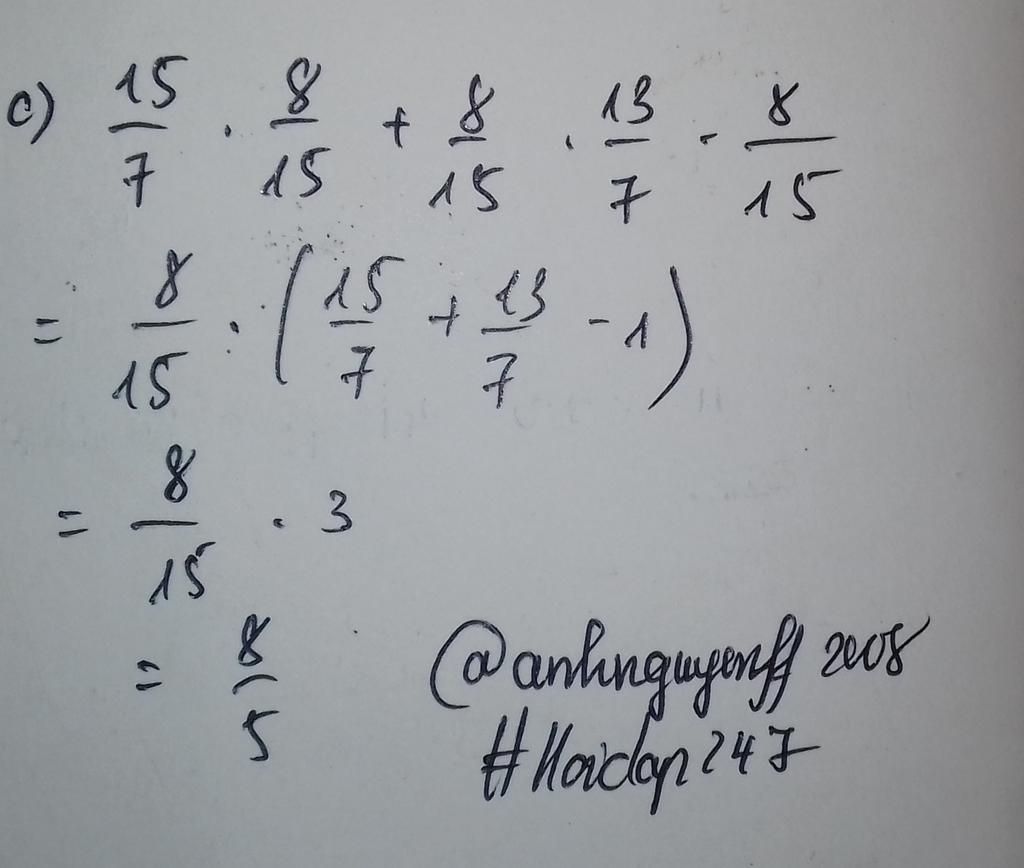 c) 15/7 . 8/15 + 8/15 . 13/7 - 8/15
= 8/15 . (15/7 + 13/7 - 1)
= 8/15 . 3
= 8/5
@anhnguyenff2008
#Hoidap247